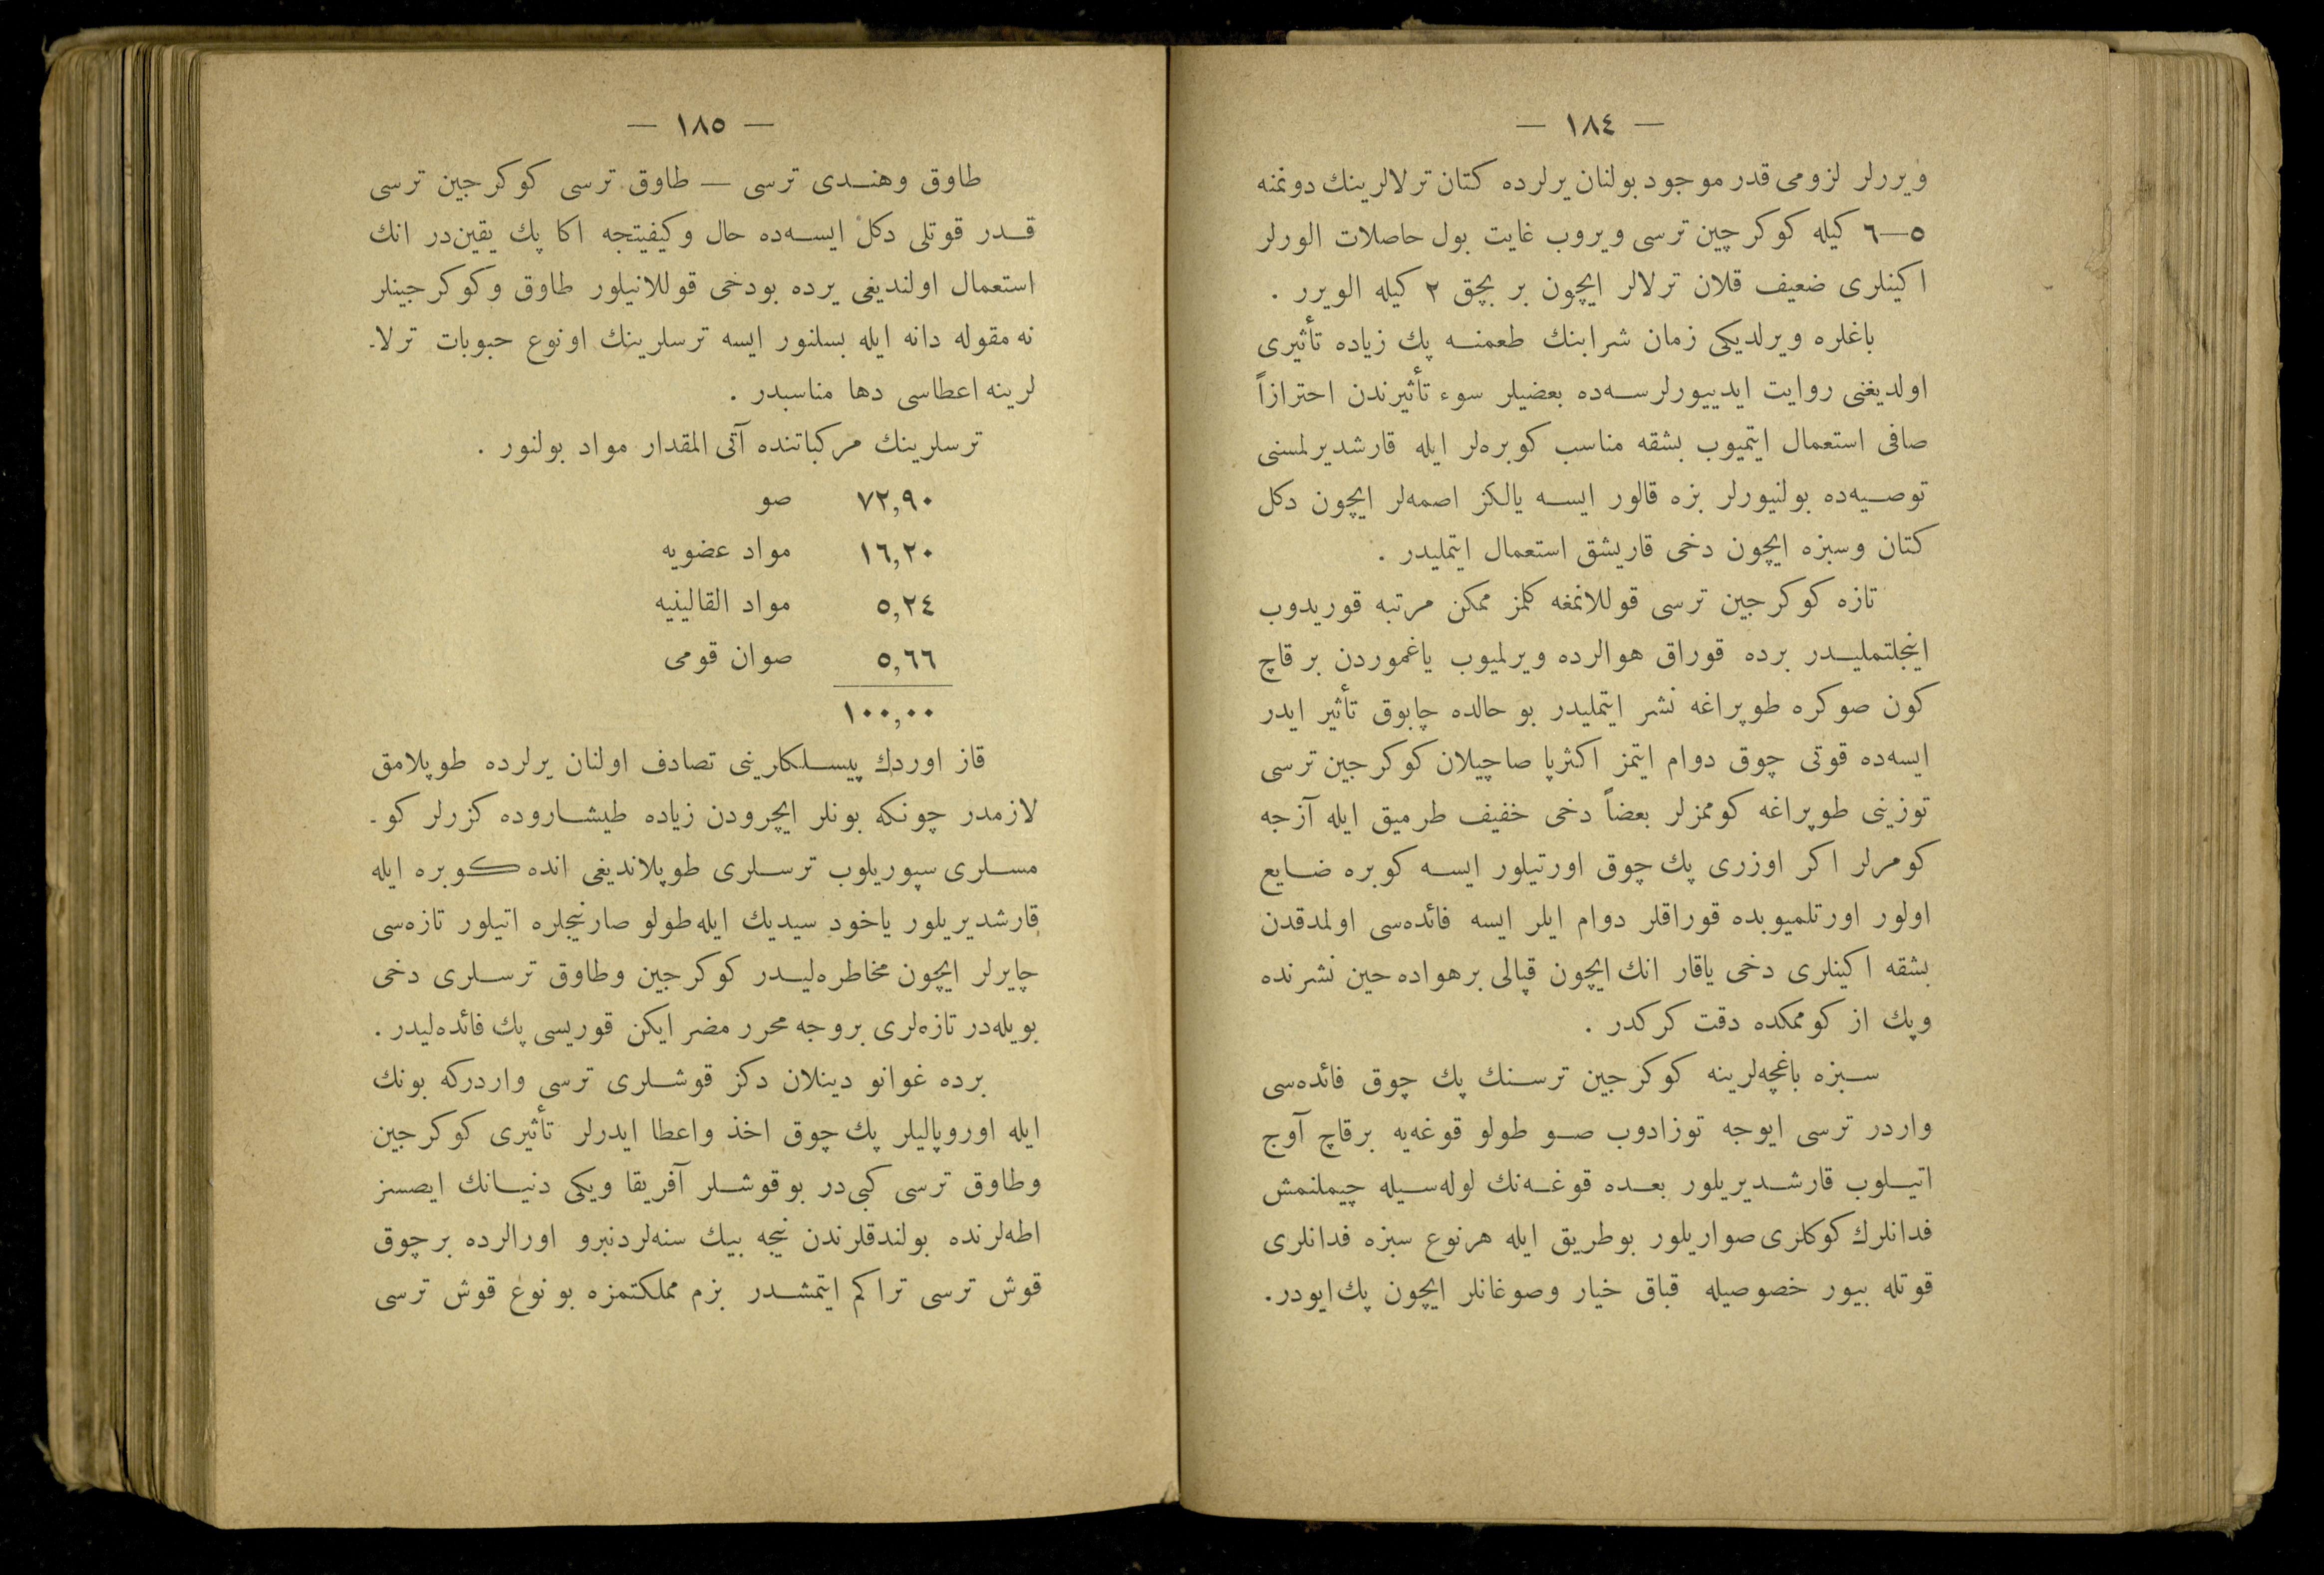 — ١٨٤ —
ويررلر لزومى قدر موجود بولنان يرلرده كتان ترلالرينك دونمنه
٥—٦ كيله كوكرچين ترسى ويروب غايت بول حاصلات الورلر
اكينلرى ضعيف قلان ترلالر ايچون بر بچق ٢ كيله الويرر .
باغلره ويرلديكى زمان شرابنك طعمنه پك زياده تأثيرى
اولديغنى روايت ايدييورلرسه‌ده بعضيلر سوء تأثيرندن احترازاً
صافى استعمال ايتميوب بشقه مناسب كوبره‌لر ايله قارشديرلمسنى
توصيه‌ده بولنيورلر بزه قالور ايسه يالكز اصمه‌لر ايچون دكل
كتان وسبزه ايچون دخى قاريشق استعمال ايتمليدر .
تازه كوكرجين ترسى قوللانمغه كلمز ممكن مرتبه قوريدوب
اينجلتمليدر برده قوراق هوالرده ويرلميوب ياغموردن بر قاچ
كون صوكره طوپراغه نشر ايتمليدر بو حالده چابوق تأثير ايدر
ايسه‌ده قوتى چوق دوام ايتمز اكثرپا صاچيلان كوكرجين ترسى
توزينى طوپراغه كوممزلر بعضاً دخى خفيف طرميق ايله آزجه
كومرلر اكر اوزرى پك چوق اورتيلور ايسه كوبره ضايع
اولور اورتلميوبده قوراقلر دوام ايلر ايسه فائده‌سى اولمدقدن
بشقه اكينلرى دخى ياقار انك ايچون قپالى برهواده حين نشرنده
وپك از كوممكده دقت كركدر .
سبزه باغچه‌لرينه كوكرجين ترسنك پك چوق فائده‌سى
واردر ترسى ايوجه توزادوب صو طولو قوغه‌يه برقاچ آوج
اتيلوب قارشديريلور بعده قوغه‌نك لوله‌سيله چيملنمش
فدانلرك كوكلرى صواريلور بوطريق ايله هرنوع سبزه فدانلرى
قوتله بيور خصوصيله قباق خيار وصوغانلر ايچون پك ايودر.
— ١٨٥ —
طاوق وهندى ترسى — طاوق ترسى كوكرجين ترسى
قدر قوتلى دكل ايسه‌ده حال وكيفيتجه اكا پك يقين‌در انك
استعمال اولنديغى يرده بودخى قوللانيلور طاوق وكوكرجينلر
نه مقوله دانه ايله بسلنور ايسه ترسلرينك اونوع حبوبات ترلا-
لرينه اعطاسى دها مناسبدر .
ترسلرينك مركباتنده آتى المقدار مواد بولنور .
٧٢,٩٠ صو
١٦,٢٠ مواد عضويه
٥,٢٤ مواد القالينيه
٥,٦٦ صوان قومى
١٠٠,٠٠
قاز اوردك پيسلكارينى تصادف اولنان يرلرده طوپلامق
لازمدر چونكه بونلر ايچرودن زياده طيشاروده كزرلر كو-
مسلرى سپوريلوب ترسلرى طوپلانديغى انده كوبره ايله
قارشديريلور ياخود سيديك ايله طولو صارنيجلره اتيلور تازه‌سى
چايرلر ايچون مخاطره‌ليدر كوكرجين وطاوق ترسلرى دخى
بويله‌در تازه‌لرى بروجه محرر مضر ايكن قوريسى پك فائده‌ليدر .
برده غوانو دينلان دكز قوشلرى ترسى واردركه بونك
ايله اوروپاليلر پك چوق اخذ واعطا ايدرلر تأثيرى كوكرجين
وطاوق ترسى كبى‌در بوقوشلر آفريقا ويكى دنيانك ايصسز
اطه‌لرنده بولندقلرندن نيجه بيك سنه‌لردنبرو اورالرده برچوق
قوش ترسى تراكم ايتمشدر بزم مملكتمزه بو نوع قوش ترسى